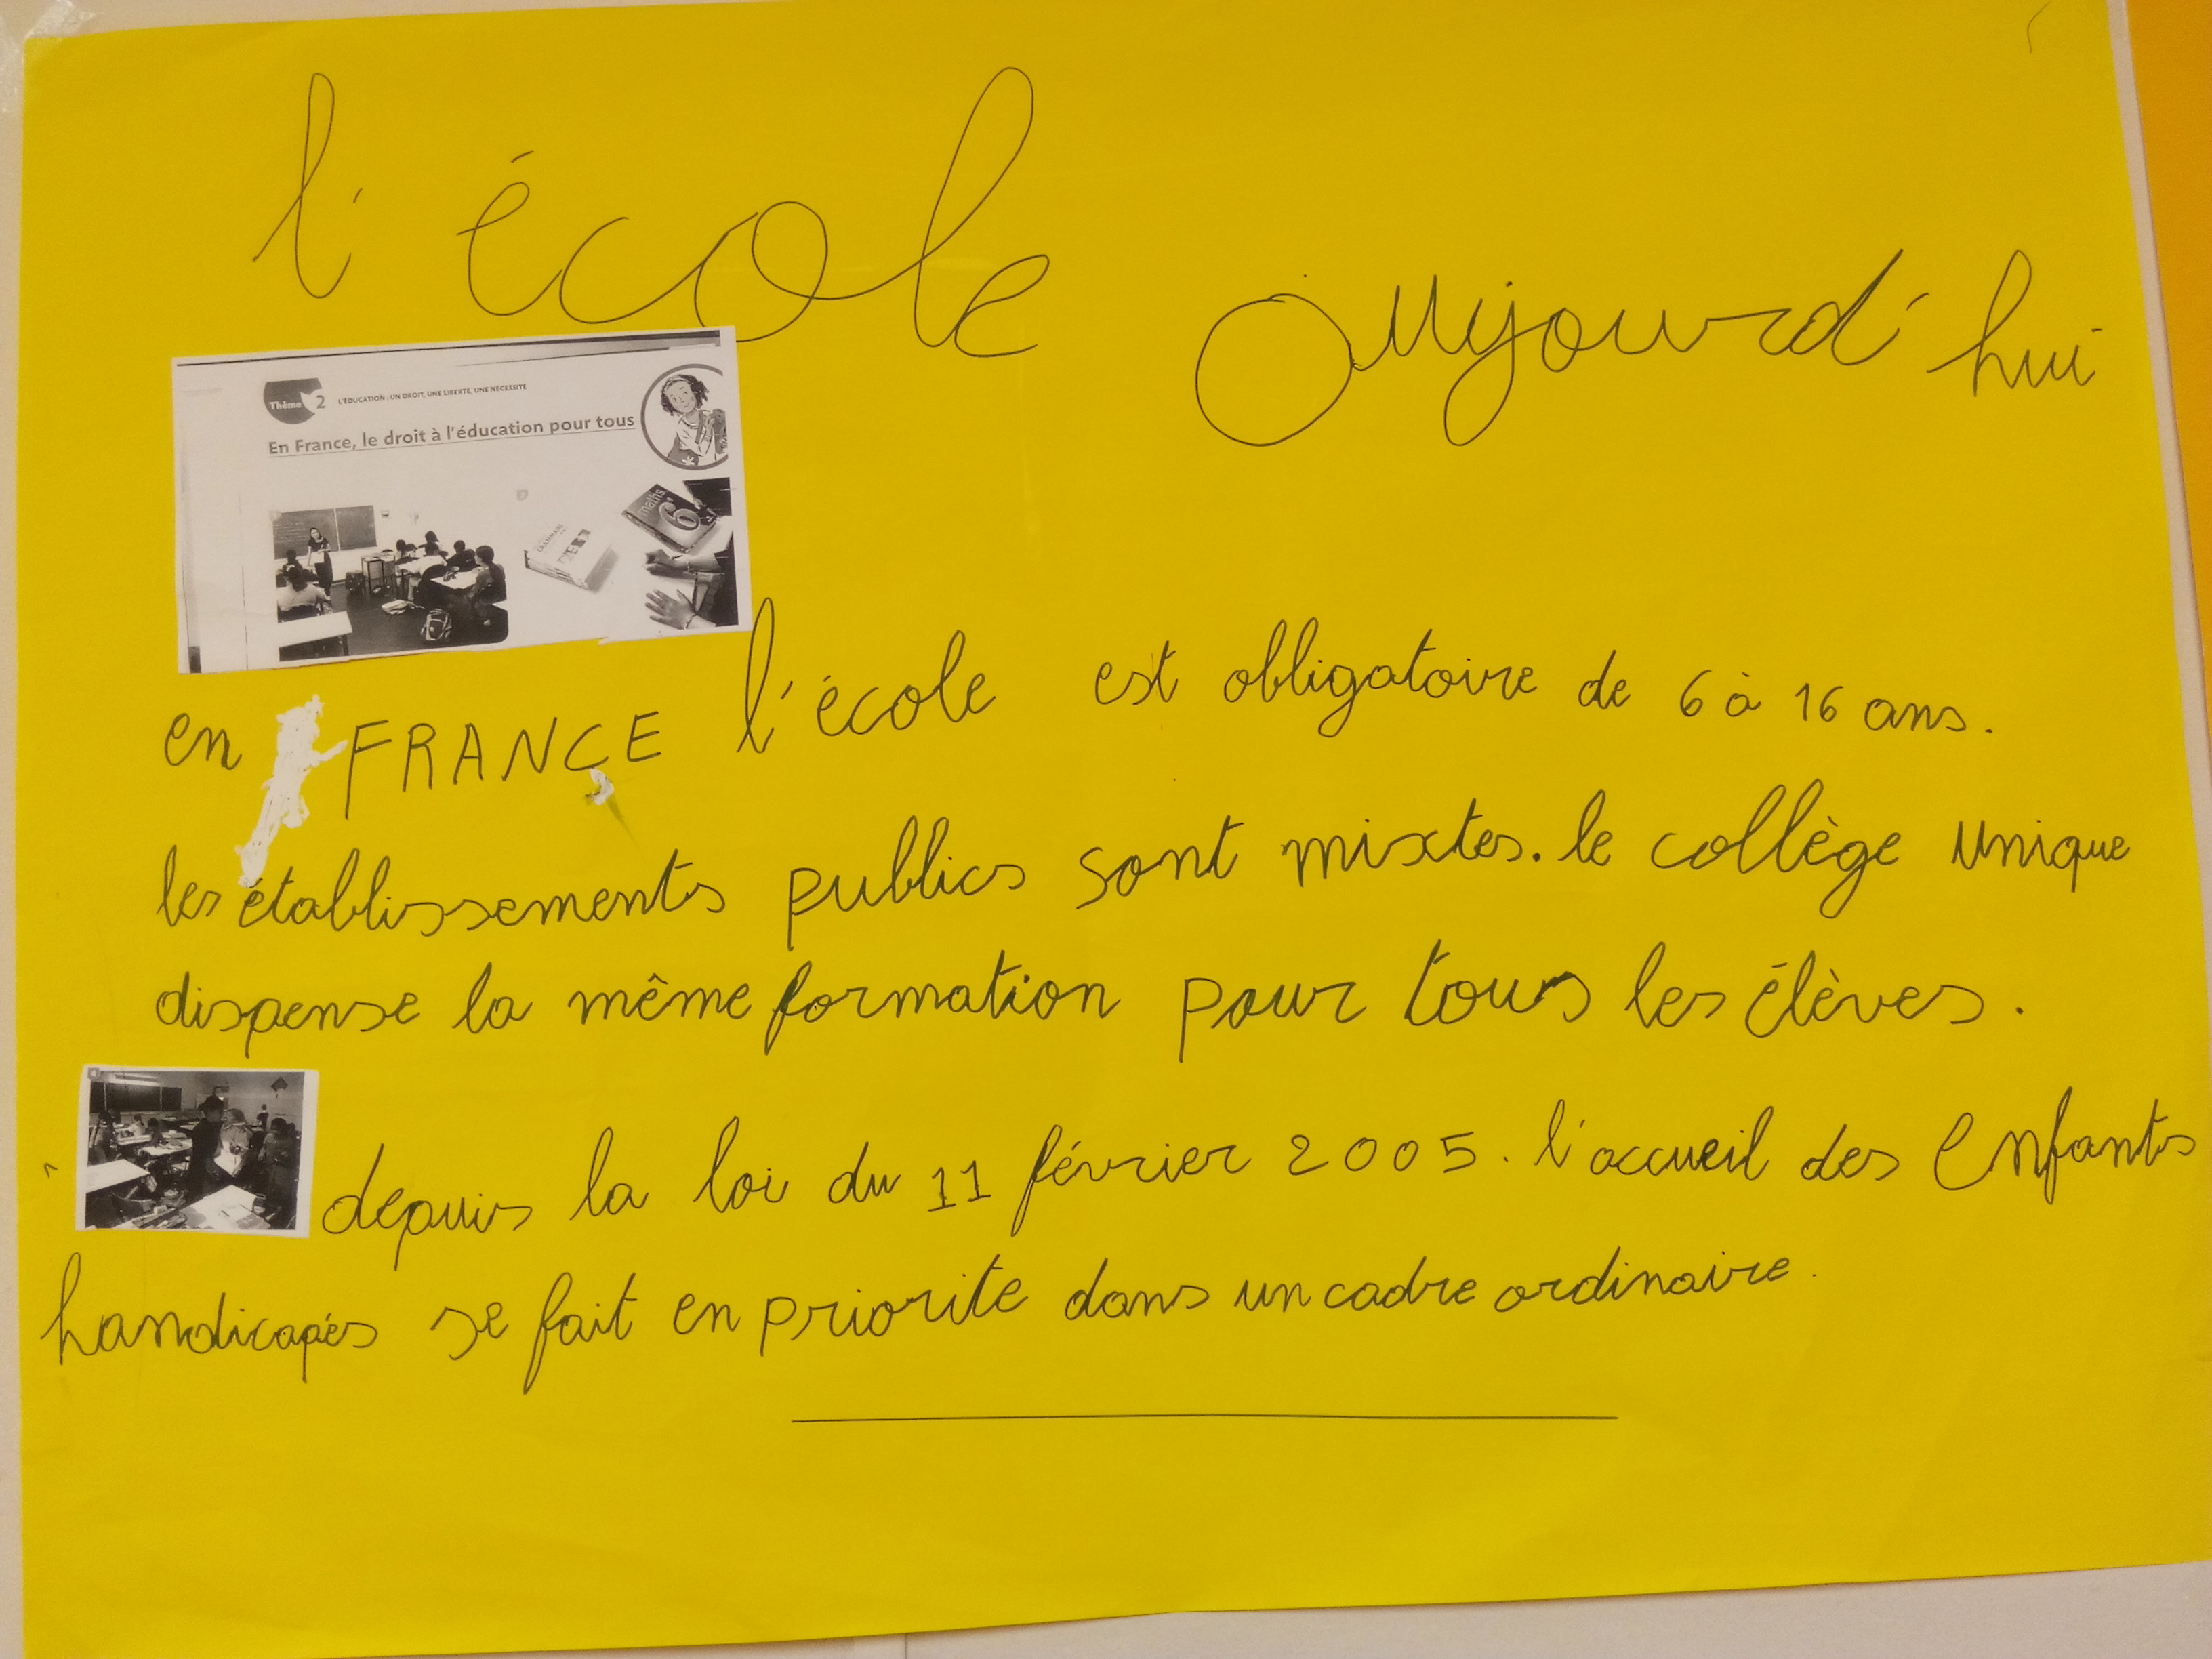 l'école
aujourd'hui
Thème 2 L'ÉDUCATION : UN DROIT, UNE LIBERTÉ, UNE NÉCESSITÉ
En France, le droit à l'éducation pour tous
maths
6e
GRAMMAIRE
en FRANCE l'école est obligatoire de 6 à 16 ans.
les établissements publics sont mixtes. le collège unique
dispense la même formation pour tous les élèves.
4
depuis la loi du 11 février 2005. l'accueil des enfants
handicapés se fait en priorite dans un cadre ordinaire.